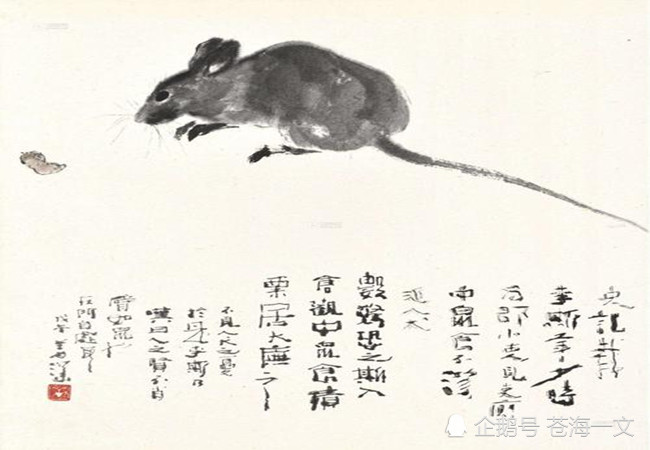 史記載
李斯年少時
為郡小吏見吏廁
中鼠食不潔
近人犬
數驚恐之斯入
倉觀中鼠食積
粟居大廡之下
不見人犬之憂
於是李斯乃
嘆曰人之賢不肖
譬如鼠也
在所自處耳
企鹅号 苍海一文